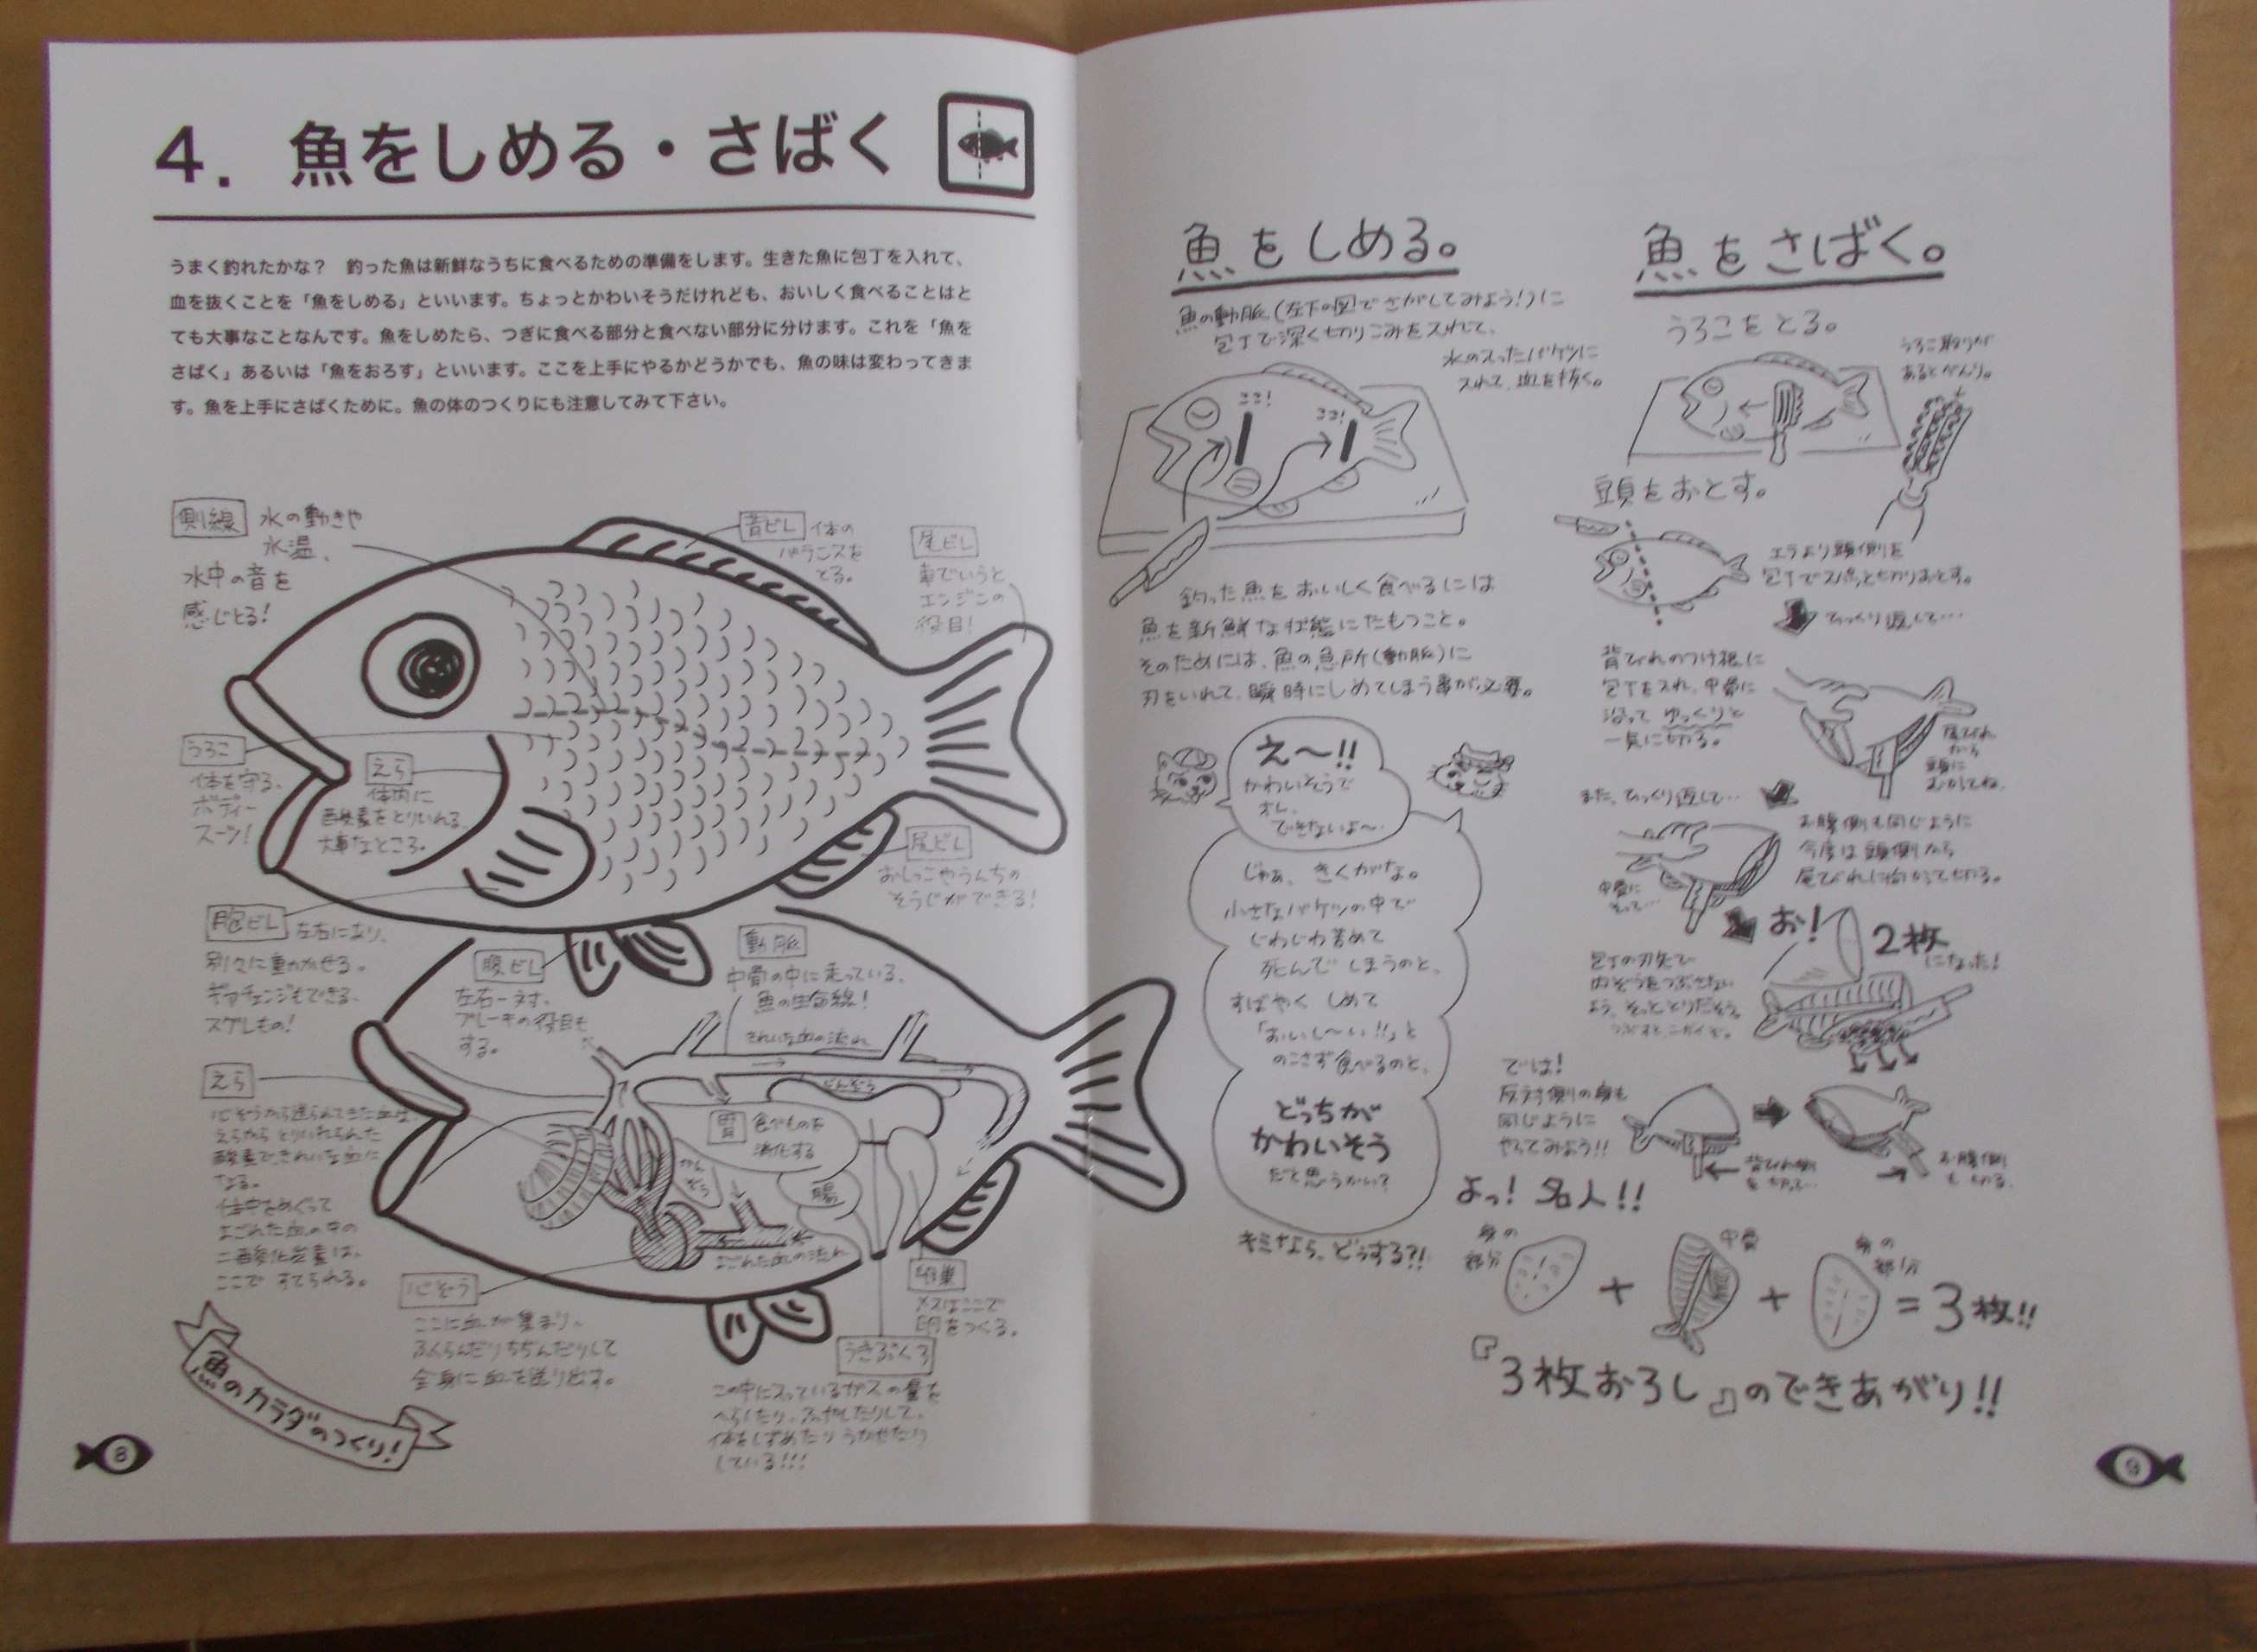 4．魚をしめる・さばく
うまく釣れたかな？　釣った魚は新鮮なうちに食べるための準備をします。生きた魚に包丁を入れて、
血を抜くことを「魚をしめる」といいます。ちょっとかわいそうだけれども、おいしく食べることはと
ても大事なことなんです。魚をしめたら、つぎに食べる部分と食べない部分に分けます。これを「魚を
さばく」あるいは「魚をおろす」といいます。ここを上手にやるかどうかでも、魚の味は変わってきま
す。魚を上手にさばくために。魚の体のつくりにも注意してみて下さい。
側線 水の動きや
水温、
水中の音を
感じとる！
背ビレ 体の
バランスを
とる。
尾ビレ
車でいうと
エンジンの
役目！
うろこ
体を守る、
ボディー
スーツ！
えら
体内に
酸素をとりいれる、
大事なところ。
尻ビレ
おしっこやうんちの
そうじができる！
胸ビレ 左右になり、
別々に動かせる。
ギアチェンジもできる、
スグレもの！
腹ビレ
左右一対。
ブレーキの役目も
する。
動脈
中骨の中に走っている、
魚の生命線！
きれいな血の流れ
じんぞう
えら
心ぞうから送られてきた血は、
えらから とりいれられた
酸素で、きれいな血に
なる。
体中をめぐって
よごれた血の中の
二酸化炭素は、
ここで すてられる。
胃 食べものを
消化する
かんぞう
腸
よごれた血の流れ
心ぞう
ここに血が集まり、
ふくらんだりちぢんだりして
全身に血を送り出す。
卵巣
メスはここで
卵をつくる。
うきぶくろ
この中に入っているガスの量を
へらしたり、ふやしたりして、
体をしずめたりうかせたり
している!!!
魚のカラダのつくり！
8
魚をしめる。
魚の動脈（左下の図でさがしてみよう！）に
包丁で深く切りこみを入れて、
水の入ったバケツに
入れて、血を抜く。
ここ！
ここ！
釣った魚をおいしく食べるには
魚を新鮮な状態にたもつこと。
そのためには、魚の急所（動脈）に
刃をいれて、瞬時にしめてしまう事が必要。
え〜!!
かわいそうで
オレ、
できないよ〜
じゃあ、きくがな。
小さなバケツの中で
じわじわ苦めて
死んでしまうのと、
すばやく しめて
「おいし〜い!!」と
のこさず食べるのと、
どっちが
かわいそう
だと思うかい？
キミなら、どうする?!
魚をさばく。
うろこをとる。
うろこ取りが
あるとべんり。
頭をおとす。
エラより頭側を
包丁でスパッと切りおとす。
ひっくり返して…
背びれのつけ根に
包丁を入れ、中骨に
沿って ゆっくりと
一気に切る。
尾びれ
から
頭に
むかってね。
また、ひっくり返して…
お腹側も同じように
今度は頭側から
尾びれに向かって切る。
中骨に
そって…
お！
2枚
になった！
包丁の刃先で
内ぞうをつぶさない
よう、そっととりだそう。
つぶすと、ニガイぞ。
では！
反対側の身も
同じように
やってみよう!!
背びれ側
を切って…
お腹側
も切る。
よっ！ 名人!!
身の
部分
＋
中骨
＋
身の
部分
＝3枚!!
『3枚おろし』のできあがり!!
9